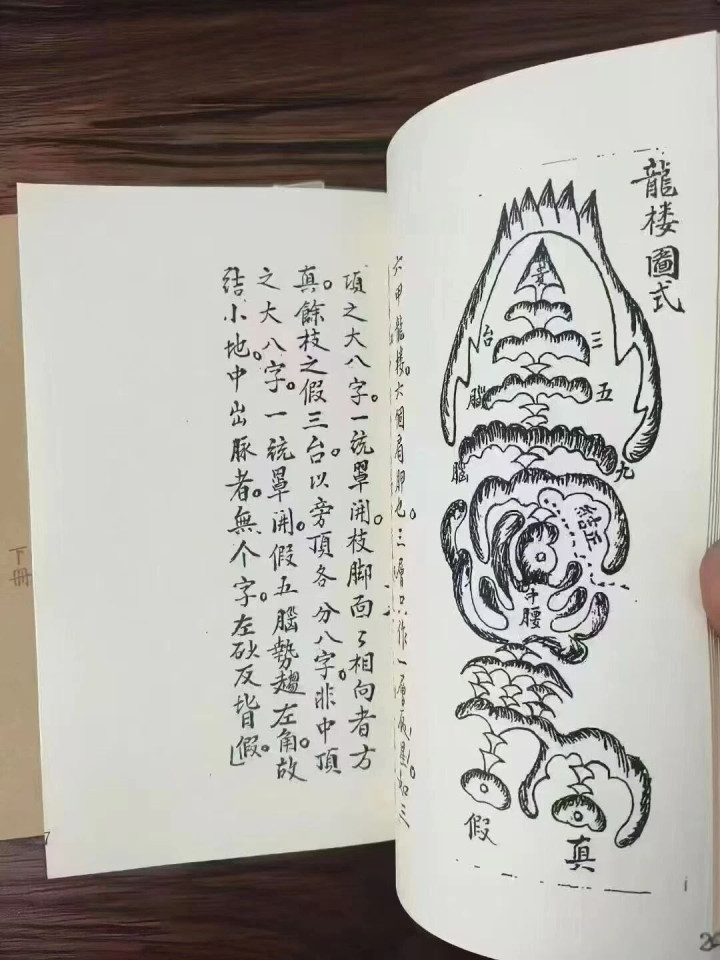 龍楼圖式
三台
五腦
九腦
腰
假
真
六甲龍楼。六個肩脚也。三層只作一層
項之大八字。一統罩開。枝脚面々相向者方
真。餘枝之假三台。以旁頂各分八字。非中頂
之大八字。一統罩開。假五腦勢趨左角。故
結小地。中出脉者。無个字。左砂反皆假。
下冊